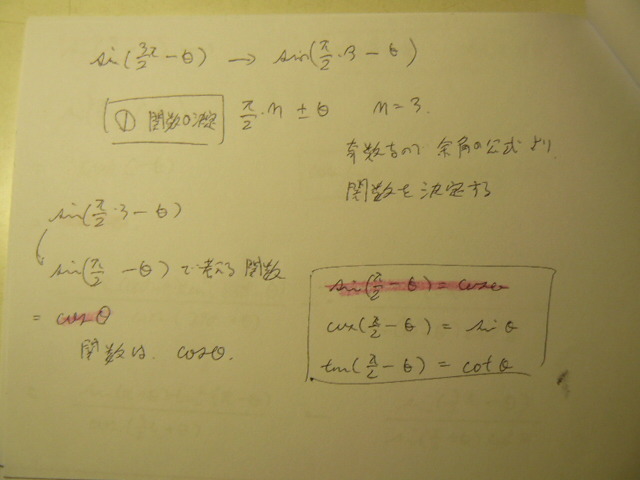 sin(3π/2 − θ) → sin(π/2・3 − θ)
① 関数の決定 π/2・n ± θ n = 3.
奇数なので 余角の公式より
関数を決定する
sin(π/2・3 − θ)
sin(π/2 − θ) で考える 関数
= cosθ
関数は. cosθ.
sin(π/2 − θ) = cosθ
cos(π/2 − θ) = sinθ
tan(π/2 − θ) = cotθ